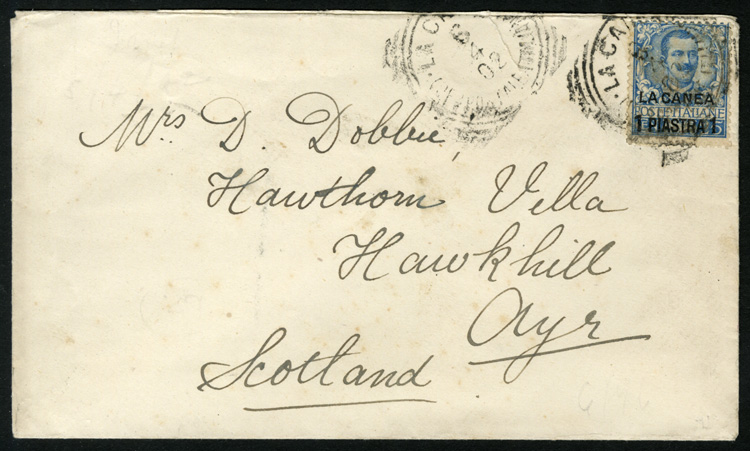 LA CANEA
POSTE ITALIANE
1 PIASTRA 1
Mrs D. Dobbie,
Hawthorn Villa
Hawkhill
Ayr
Scotland